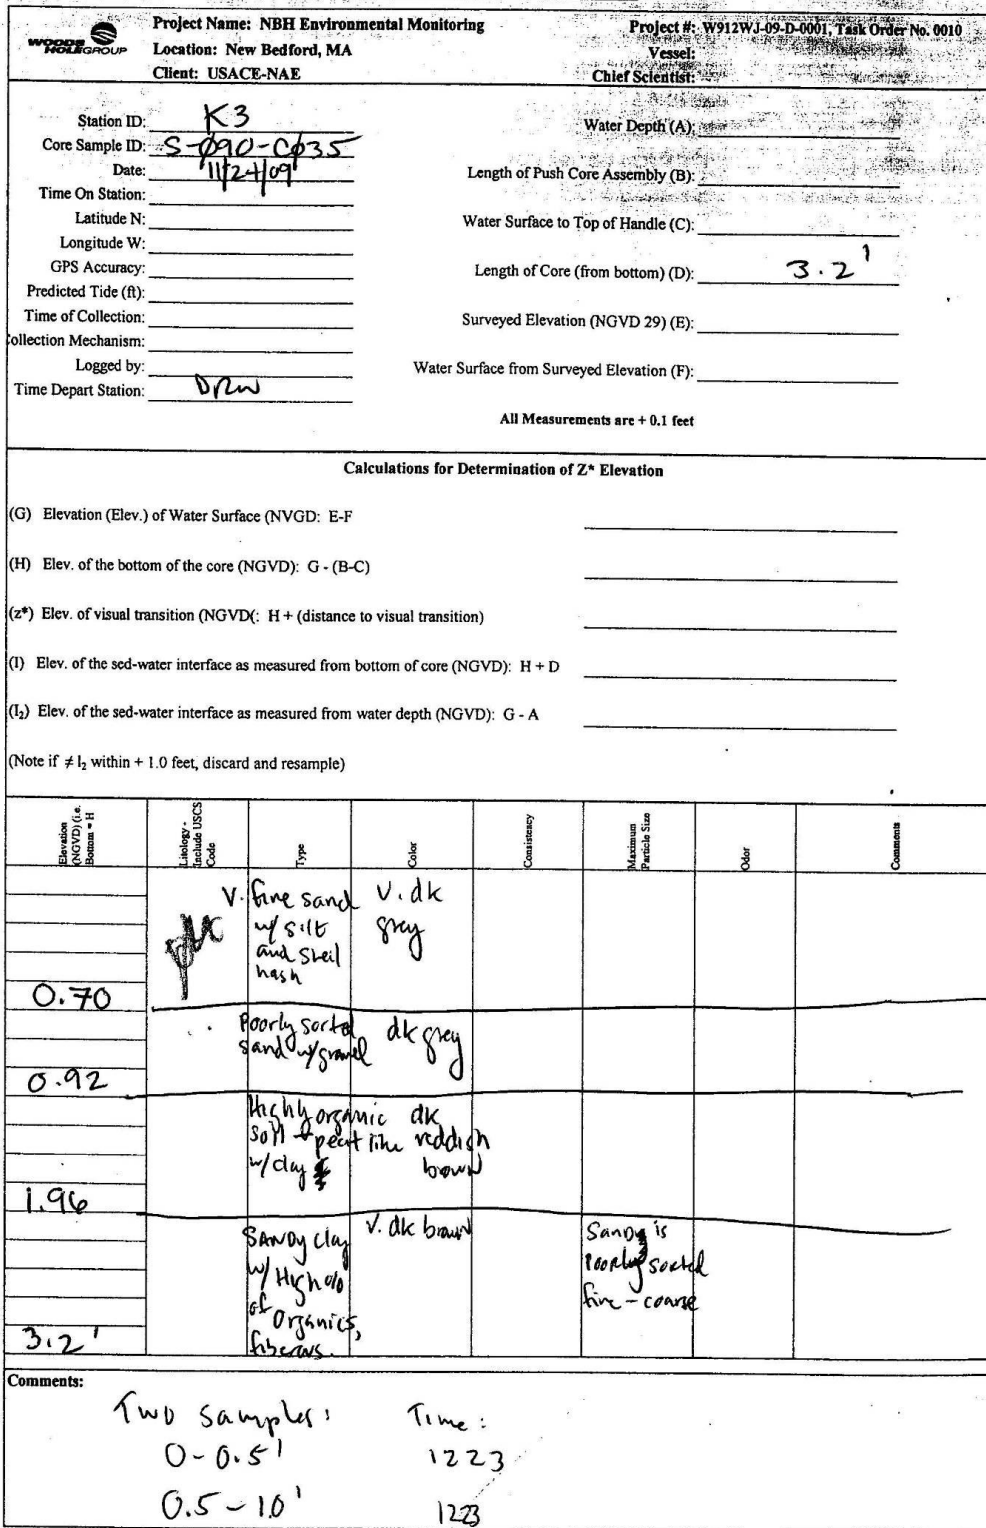 WOODS HOLE GROUP
Project Name: NBH Environmental Monitoring
Location: New Bedford, MA
Client: USACE-NAE
Project #: W912WJ-09-D-0001, Task Order No. 0010
Vessel:
Chief Scientist:
Station ID: K3
Core Sample ID: S-Ø90-CØ35
Date: 11/24/09
Time On Station:
Latitude N:
Longitude W:
GPS Accuracy:
Predicted Tide (ft):
Time of Collection:
ollection Mechanism:
Logged by:
Time Depart Station: DRW
Water Depth (A):
Length of Push Core Assembly (B):
Water Surface to Top of Handle (C):
Length of Core (from bottom) (D): 3.2'
Surveyed Elevation (NGVD 29) (E):
Water Surface from Surveyed Elevation (F):
All Measurements are + 0.1 feet
Calculations for Determination of Z* Elevation
(G) Elevation (Elev.) of Water Surface (NVGD: E-F
(H) Elev. of the bottom of the core (NGVD): G - (B-C)
(z*) Elev. of visual transition (NGVD(: H + (distance to visual transition)
(I) Elev. of the sed-water interface as measured from bottom of core (NGVD): H + D
(I₂) Elev. of the sed-water interface as measured from water depth (NGVD): G - A
(Note if ≠ I₂ within + 1.0 feet, discard and resample)
Elevation
(NGVD) (i.e.
Bottom = H
Litology -
Include USCS
Code
Type
Color
Consistency
Maximum
Particle Size
Odor
Comments
V. fine sand
w/ silt
and shell
hash
V. dk
grey
0.70
Poorly sorted
sand w/gravel
dk grey
0.92
Highly organic
soil + peat like
w/ clay
dk
reddish
brown
1.96
SANDy clay
w/ High %
of organics,
fiberous.
V. dk brown
Sandy is
poorly sorted
fine - coarse
3.2'
Comments:
Two samples: Time:
0-0.5' 1223
0.5-1.0' 1223